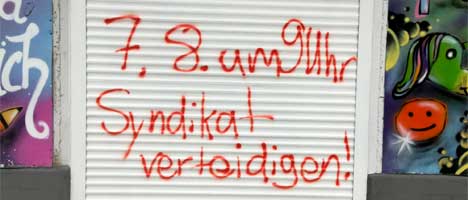 7. 8. um 9 Uhr
Syndikat
verteidigen!
ich